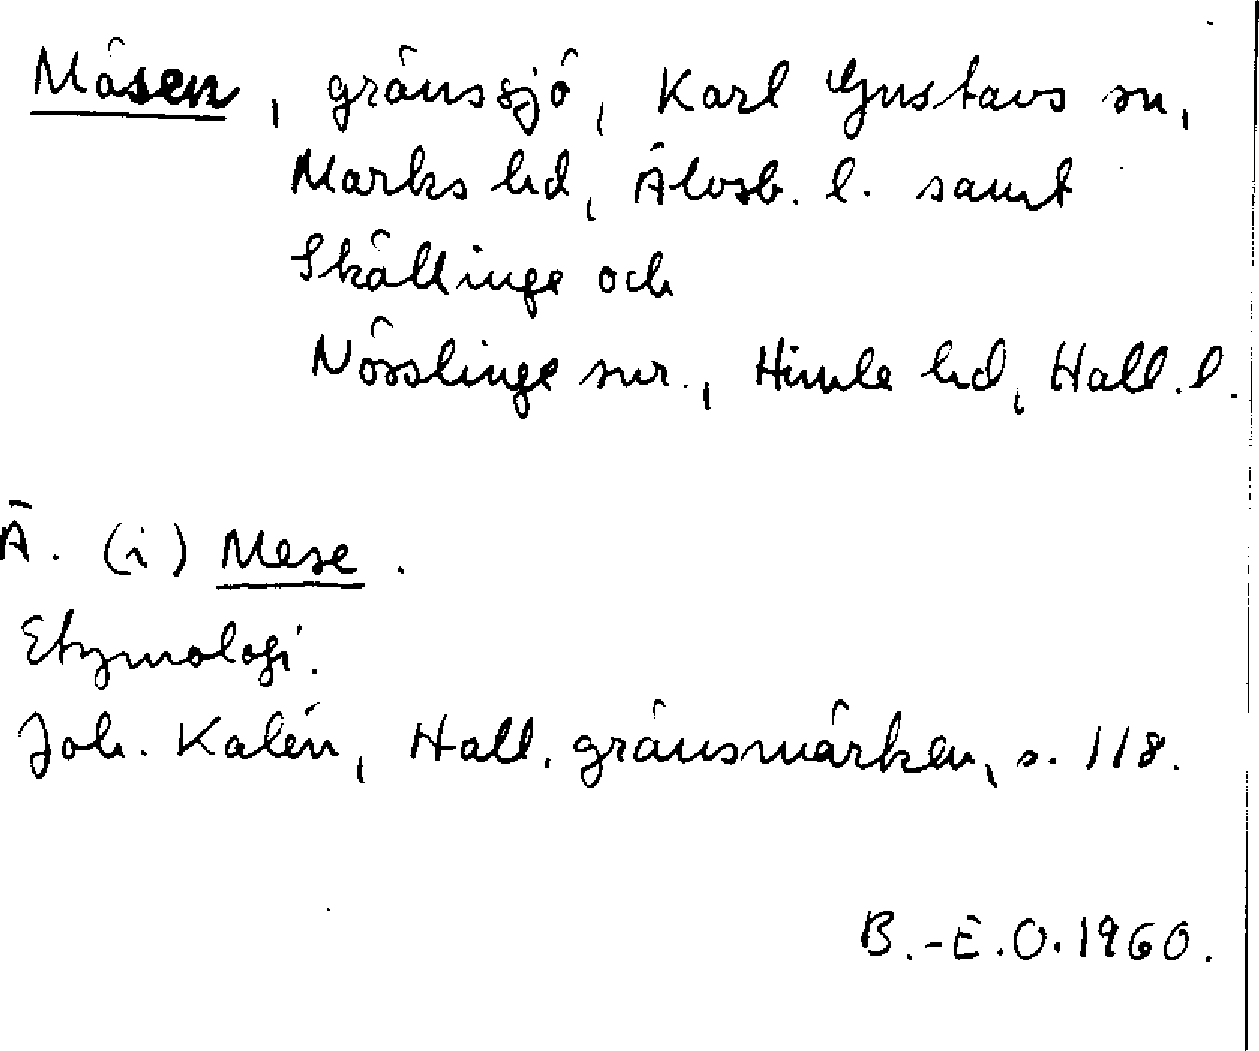 Mäsen, gränssjö, Karl Gustavs sn,
Marks hd, Älvsb. l. samt
Skällinge och
Nösslinge snr., Himle hd, Hall. l.
Ä. (i) Mese.
Etymologi.
Joh. Kalén, Hall. gränsmärken, s. 118.
B.-E.O. 1960.